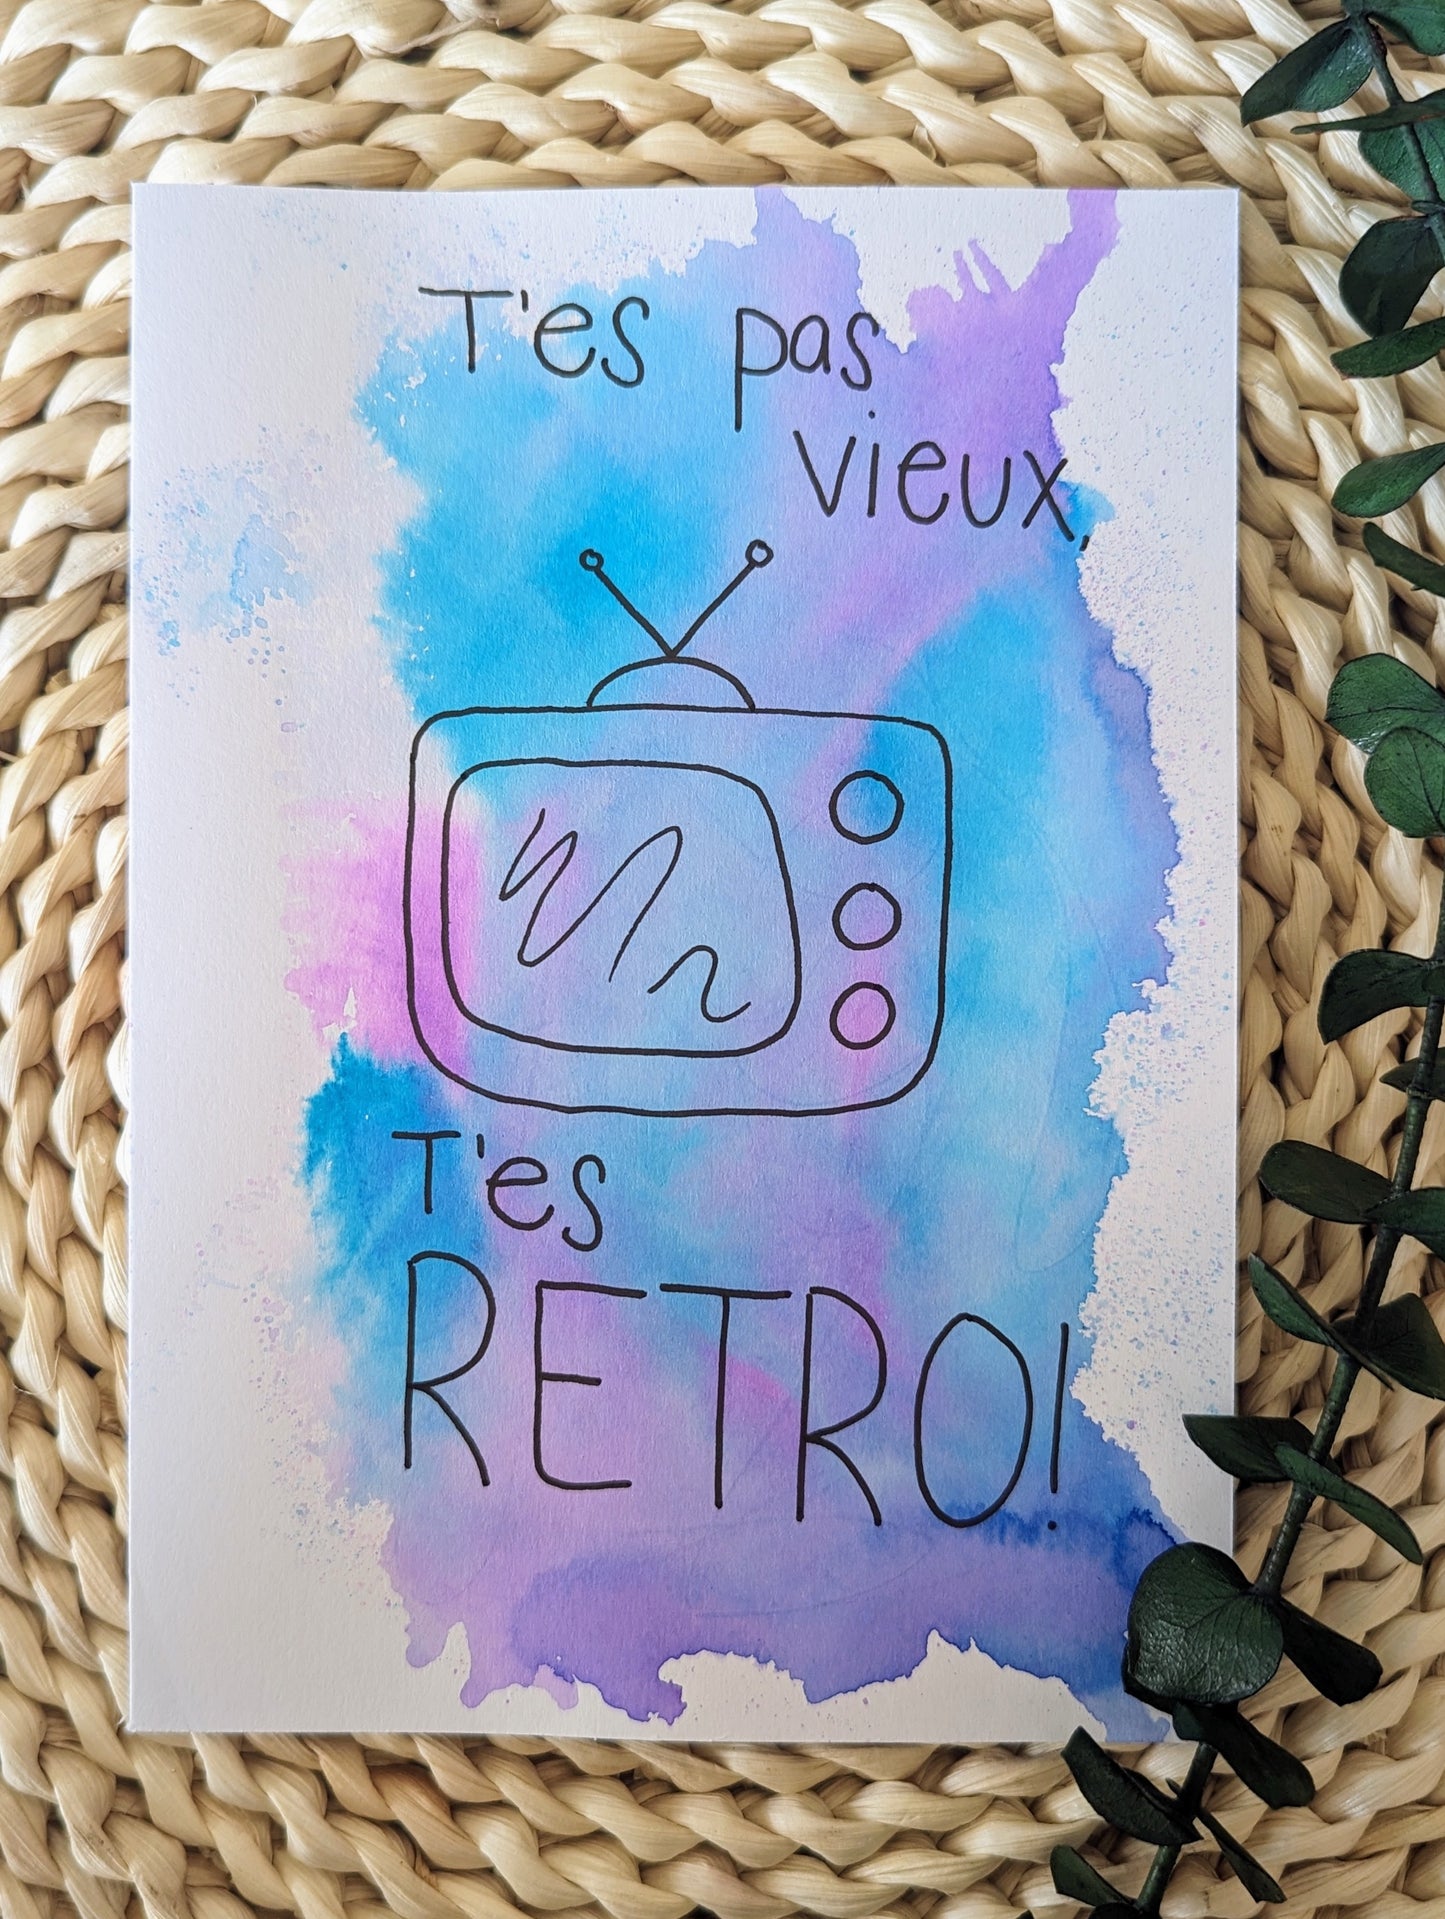 T'es pas
vieux,
T'es
RETRO!